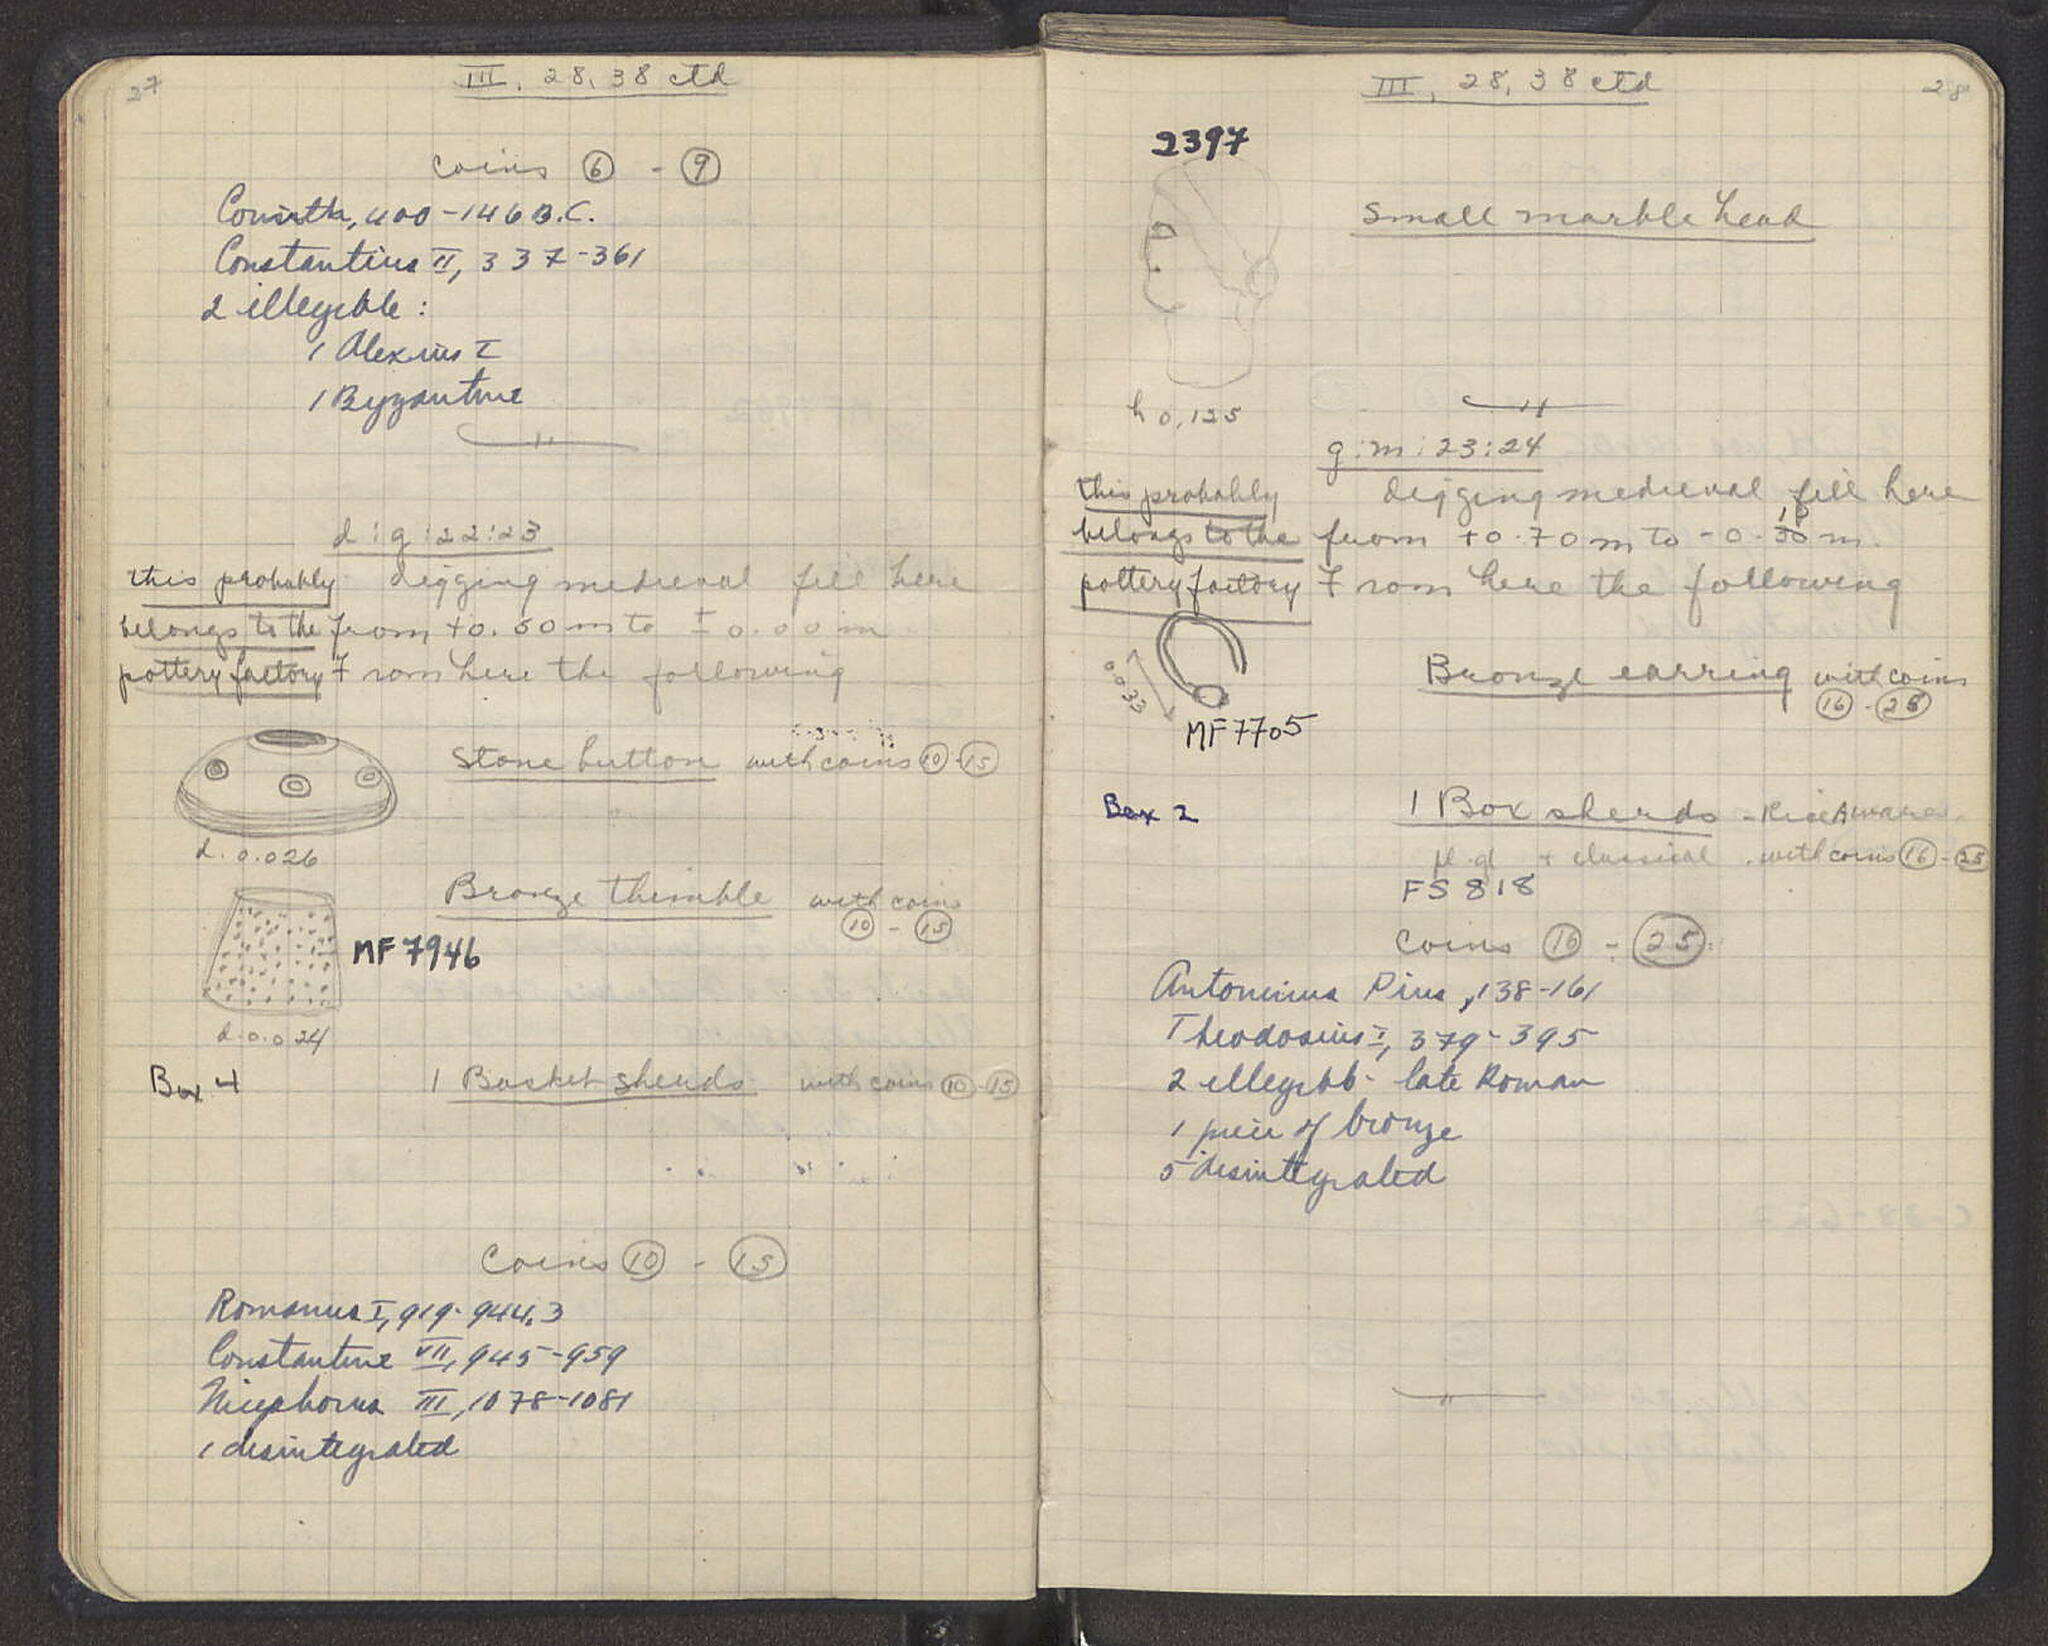 27
III, 28, 38 ctd
coins 6 - 9
Corinth, 400-146 B.C.
Constantius II, 337-361
2 illegible:
1 Alexius I
1 Byzantine
d:g:22:23
this probably digging medieval fill here
belongs to the from +0.50 m to ± 0.00 m
pottery factory From here the following
Stone button with coins 10-15
d. 0.026
Bronze thimble with coins
10 - 15
MF 7946
d. 0.024
Box 4 1 Basket sherds with coins 10-15
Coins 10 - 15
Romanus I, 919-944. 3
Constantine VII, 945-959
Nicephorus III, 1078-1081
1 disintegrated
III, 28, 38 ctd
28
2397
Small marble head
h 0,125
g:m:23:24
this probably digging medieval fill here
belongs to the from +0.70 m to -0. 10 m.
pottery factory From here the following
0.033
Bronze earring with coins
16 - 25
MF 7705
Box 2 1 Box sherds -
+ classical with coins 16-25
FS 818
Coins 16 - 25:
Antoninus Pius, 138-161
Theodosius I, 379-395
2 illegible - late Roman
1 piece of bronze
5 disintegrated